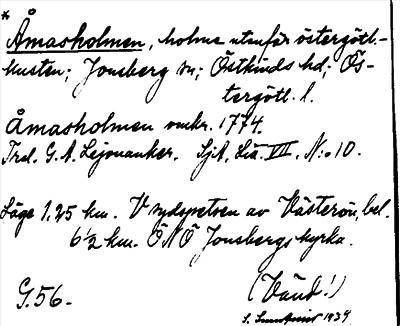 *
Åmasholmen, holme utanför östergötl.-
kusten; Jonsberg sn; Östkinds hd; Ös-
tergötl. l.
Åmasholmen omkr. 1774.
Fred. G. A. Lejonanker. SjA, Lit. VII, N:o 10.
Läge 1,25 km. V sydspetsen av Västerön, bel.
6 1/2 km. ÖNÖ Jonsbergs kyrka.
G. 56.
(Vänd!)
S. 1934